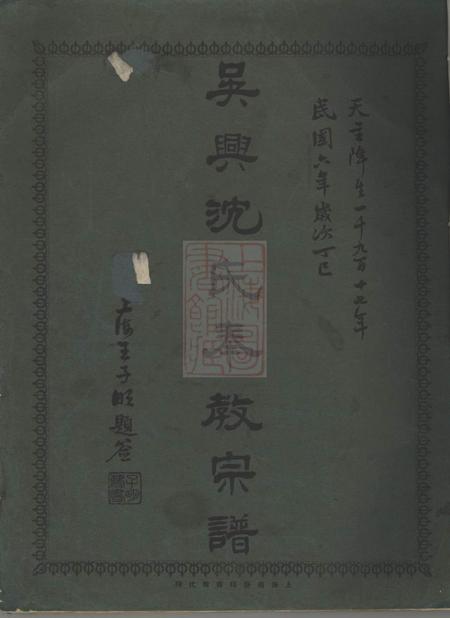 天主降生一千九百十七年
民國六年歲次丁巳
吳興沈氏奉教宗譜
上海王子明題簽
上海圖書館藏